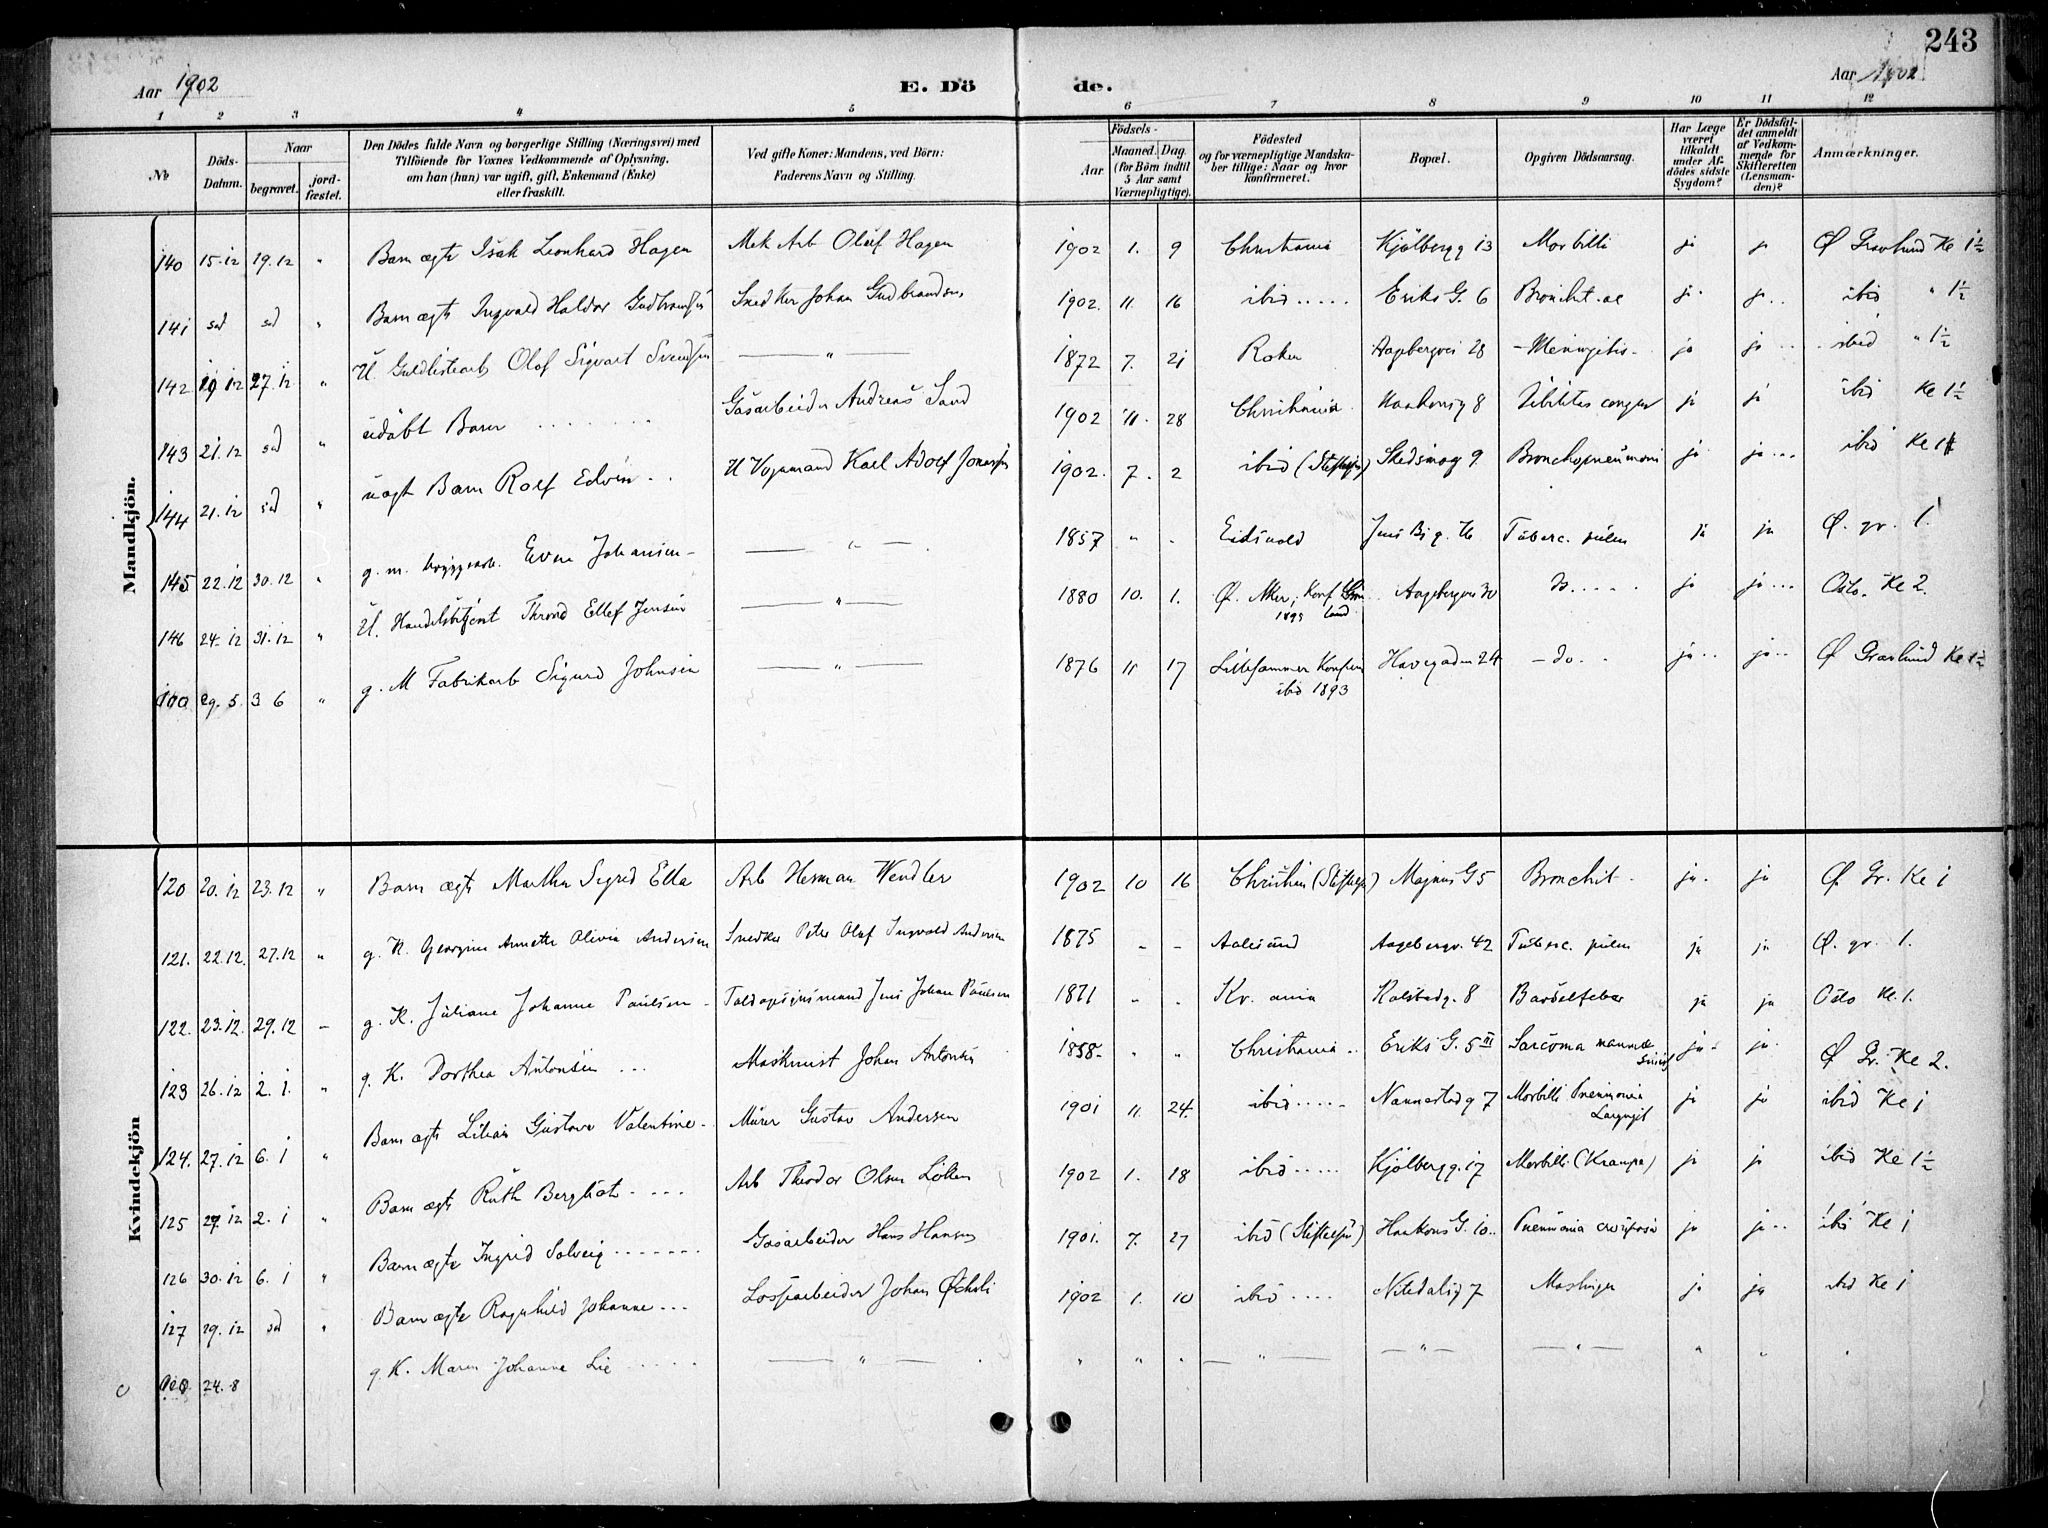 243
Aar 1902 E. Dö de. Aar 1902
1 2 3 4 5 6 7 8 9 10 11 12
No
Döds-Datum.
Naar
begravet.
jord-fæstet.
Den Dödes fulde Navn og borgerlige Stilling (Næringsvei) med
Tilföiende for Voxnes Vedkommende af Oplysning,
om han (hun) var ugift, gift, Enkemand (Enke)
eller fraskilt.
Ved gifte Koner: Mandens, ved Börn:
Faderens Navn og Stilling.
Födsels-
Aar.
Maaned. Dag.
(for Börn indtil
5 Aar samt
Værnepligtige).
Födested
og for værnepligtige Mandska-
ber tillige: Naar og hvor
konfirmeret.
Bopæl.
Opgiven Dödsaarsag.
Har Læge
været
tilkaldt
under Af-
dödes sidste
Sygdom?
Er Dödsfal-
det anmeldt
af Vedkom-
mende for
Skifteretten
(Lensman-
den)?
Anmærkninger.
Mandkjön.
140 15.12 19.12 " Barn ægte Isak Leonhard Hagen Mek Arb Oluf Hagen 1902 1. 9 Christiania Kjölbergg 13 Morbilli ja ja Ø Gravlund Ke 1½
141 sd sd " Barn ægte Ingvald Haldor Gudbrandsen Snedker Johan Gudbrandsen 1902. 11 16 ibid ..... Eriks G. 6 Bronchit. ac ja ja .. ibid " 1½
142 19 12 27.12 " U. Guldlistearb Olaf Sigvart Svendsen — " — 1872 7. 21 Aagebergvei 28 - Meningitis - ja ja ibid " 1½
143 21.12 sd " udöbt Barn ........ Gasarbeider Andreas Sand 1902 11. 28 Christiania Haakonsg 8 Debilitas congen ja ja ibid Ke 1½
144 21.12 sd " uægt Barn Rolf Edvin .. U Vognmand Karl Adolf 1902. 7. 2 ibid (Stiftelsen) Skedsmog 9. Bronchopneumoni ja ja ... ibid Ke 1
145 22.12 30.12 " g. m. bryggearb. Even Johansen - — " — 1857 " . Eidsvold Jens Bj g. Tuberc. pulm ja ja Ø. gr. 1.
146 24.12 31.12 " U. Handelsbetjent Thrond Ellef Jensen — " — 1880 10. 1. Ø. Aker, Konf Grön
1895 land Aagebergvei 30 Do ..... ja ja ... Oslo. Ke 2.
29.5 3 6 " g. M Fabrikarb Sigurd Johnsen — " — 1876 11 17 Lillehammer
ibid 1893 Havegaden 24 - do . . ja .. ja .. Ø Gravlund Ke 1½
Kvindekjön
120 20.12 23.12 " Barn ægte Martha Sigrid Ella Arb Herman Wendler 1902 10 16 (Stiftelsen) Magnus G 5 Bronchit. ja. ja Ø Gr. Ke 1
121. 22.12. 27.12 " g. K. Georgine Annette Olivia Andersen Snedker Peter Olaf Ingvald Andersen 1875 - - Aalesund Aagebergv. 42 Tuberc. pulm ja ja Ø. gr. 1.
122. 23.12. 29.12 - g. K. Juliane Johanne Paulsen - Toldopsynsmand Jens Johan Paulsen 1871 " . Kr. ania Kolstadg. 8 Barselfeber ja ja Oslo Ke. 1.
123 26.12 2. 1. " g. K. Dorthea Antonsen ... Maskinist Johan Antonsen 1858- " " Christiania .. Eriks G. 5 III Sarcoma mammae ja. ja. Ø Gr. Ke 2.
124. 27.12 6. 1 " Barn ægte Lilian Gustava Valentine - Murer Gustav Andersen 1901 11. 24. ibid ..... Nannestad g 7 Morbilli Pneumonia
Laryngit ja ja ibid Ke 1
125 27.12 2. 1 " Barn ægte Ruth Bergliot .... Arb Theodor Olsen Löken 1902 1. 18 ibid ..... Kjölbergg. 17 Morbilli (Krampe) ja ja ibid Ke 1½
126 30.12 6. 1 " Barn ægte Ingrid Solveig ....... Gasarbeider Hans Hansen 1901. 7. 27 ibid (Stiftelsen) Haakons G. 10.. Pneumonia crouposa ja ja .. ibi Ke 1
127 29.12 sd " Barn ægte Ragnhild Johanne ... Losjearbeider Johan 1902 1. 10 ibid .... Nitedalsg 7 Mæslinger ja ja ibid Ke 1
24.8 g. K. Maren Johanne Lie ..... — " — " " . — " — — " — — " — "